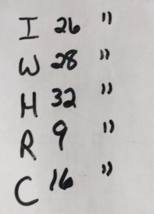 I 26 "
W 28 "
H 32 "
R 9 "
C 16 "